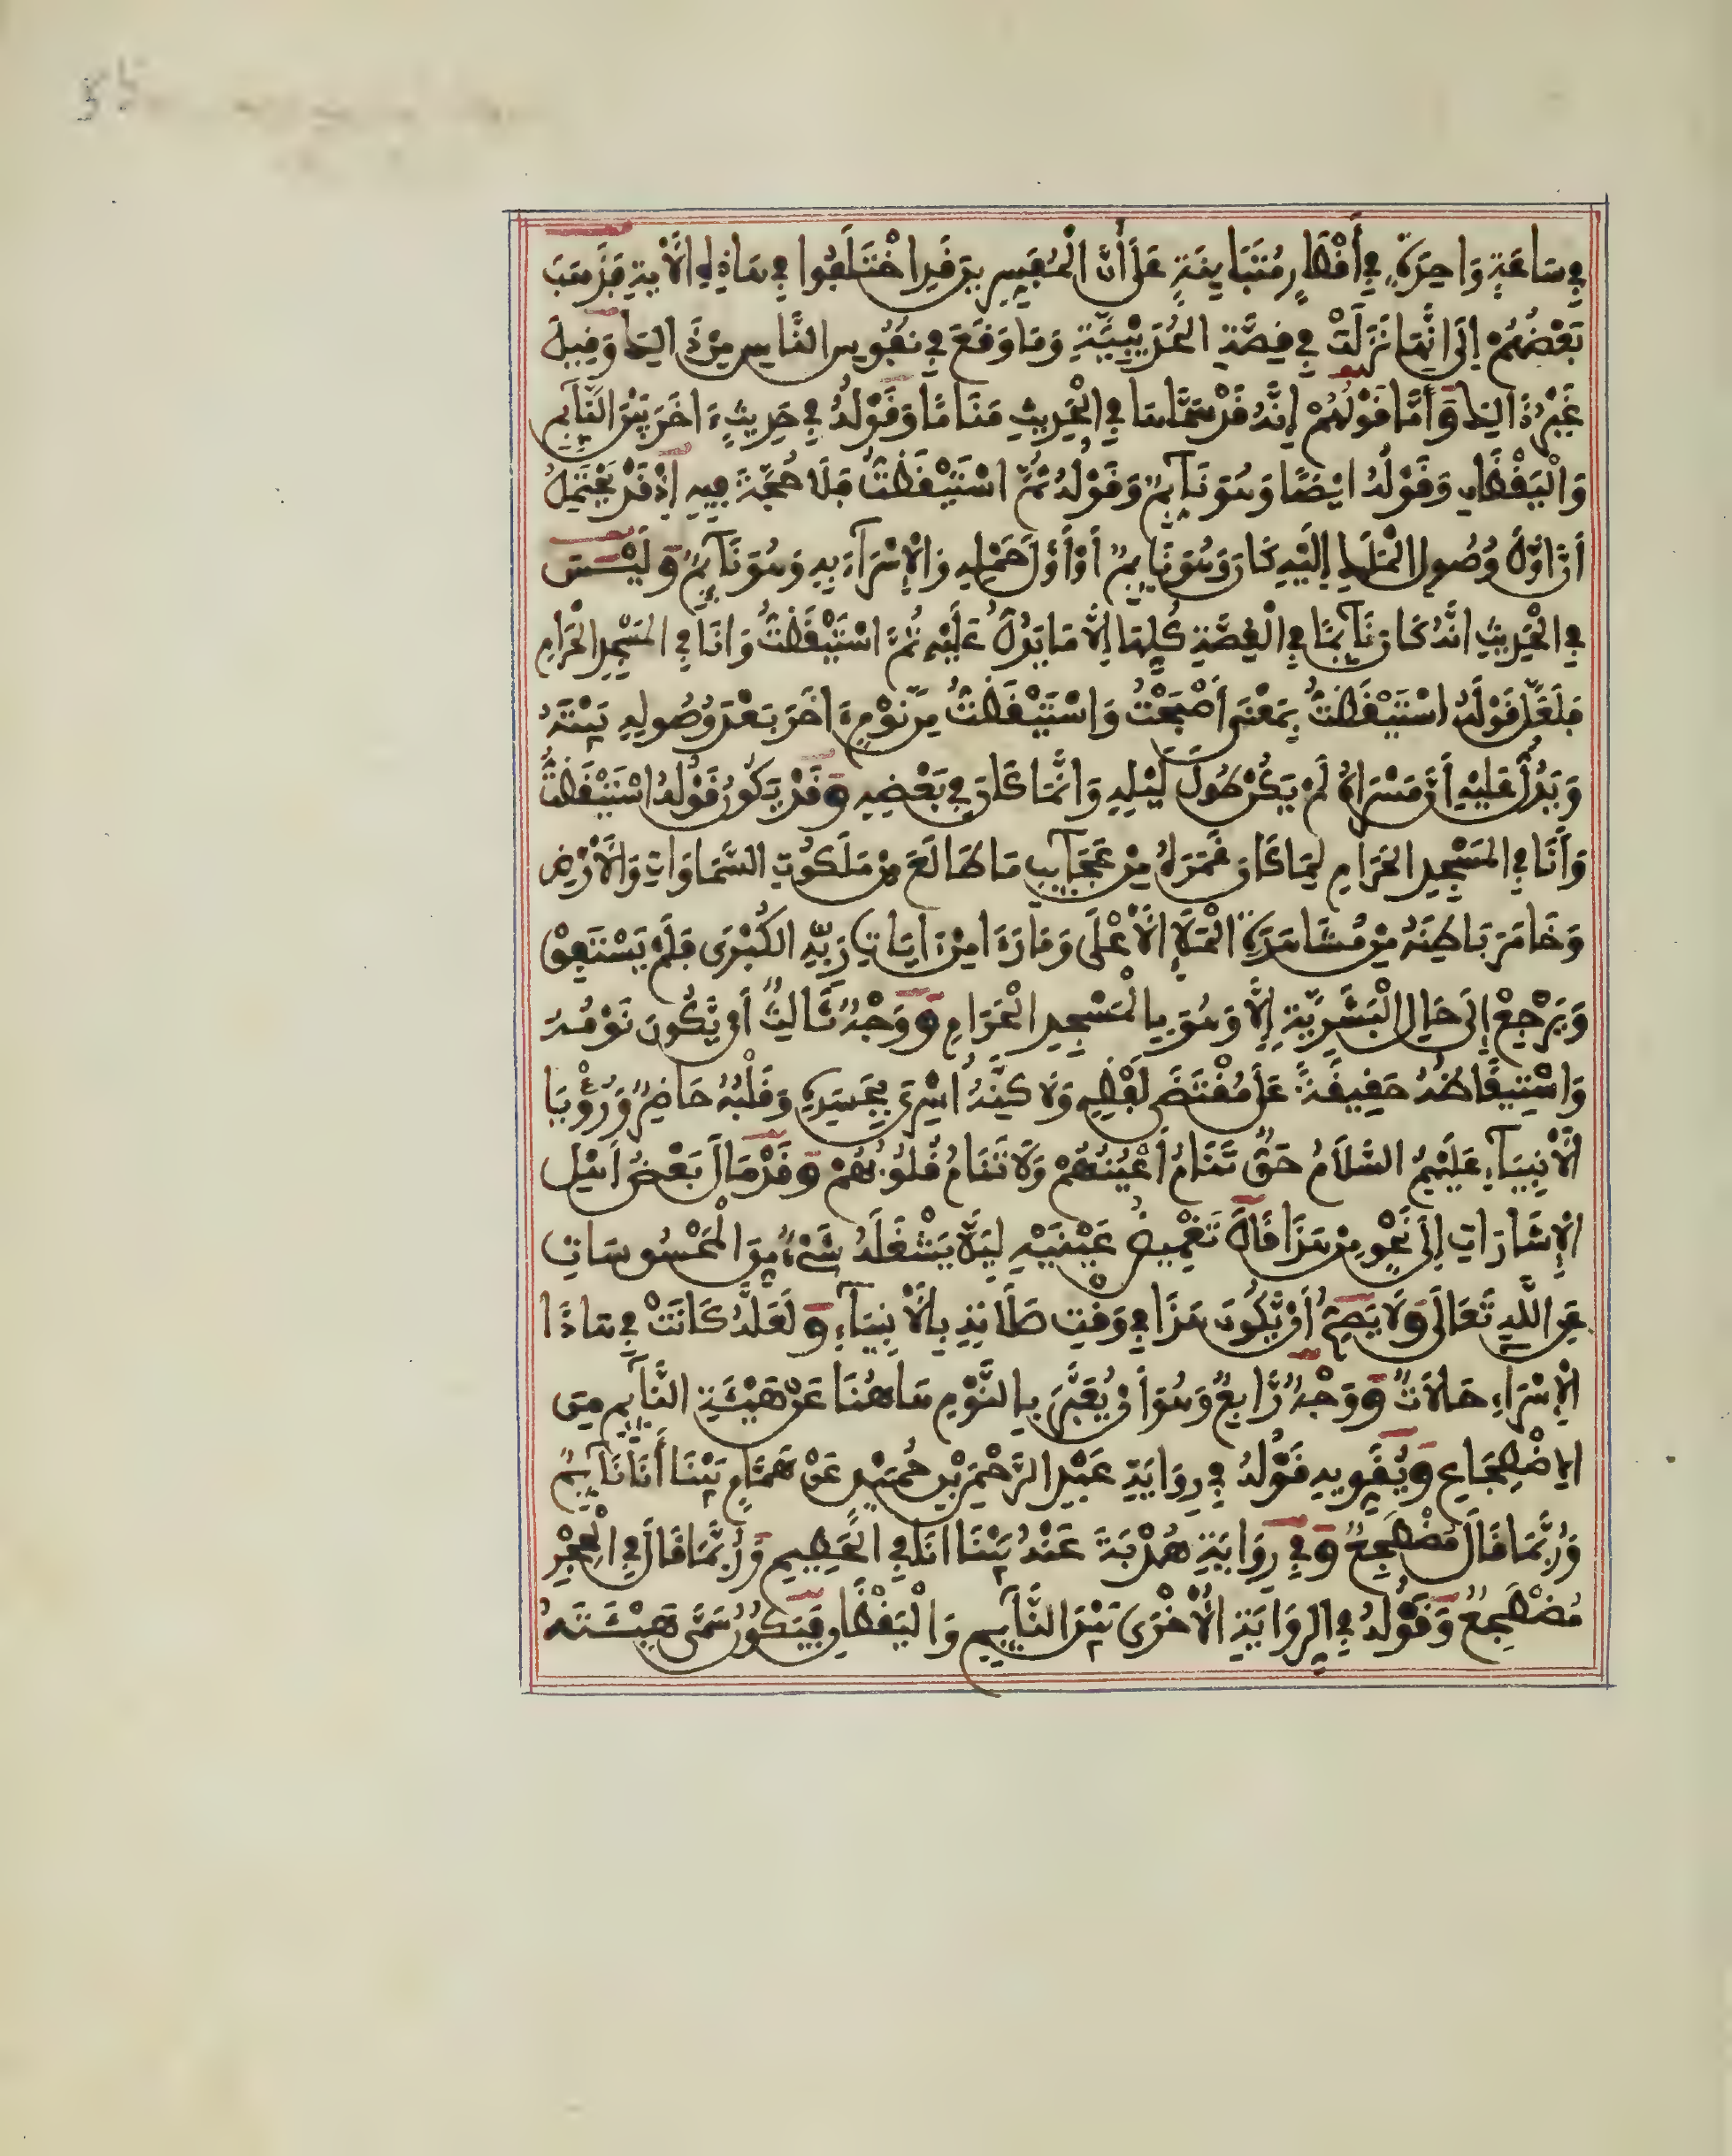 فِي سَاعَةٍ وَاحِدَةٍ فِي أَقْطَارٍ مُتَبَايِنَةٍ عَلَى أَنَّ الْمُفَسِّرِينَ قَدِ اخْتَلَفُوا فِي هَاذِهِ الْأَيَةِ فَذَهَبَ
بَعْضُهُمْ إِلَى انَّهَا نَزَلَتْ فِي قِصَّةِ الْحُدَيْبِيَّةِ وَمَا وَقَعَ فِي نُفُوسِ النَّاسِ مِنْ ذَالِكَ وَقِيلَ
غَيْرُ ذَالِكَ وَأَمَّا قَوْلُهُمْ إِنَّهُ قَدْ سَمَّاهَا فِي الْحَدِيثِ مَنَامًا وَقَوْلُهُ فِي حَدِيثٍ اخَرَ بَيْنَ النَّآئِمِ
وَالْيَقْظَانِ وَقَوْلُهُ ايْضًا وَهُوَ نَآئِمٌ وَقَوْلُهُ ثُمَّ اسْتَيْقَظْتُ فَلَا حُجَّةَ فِيهِ إِذْ قَدْ يَحْتَمِلُ
أَنَّ اوَّلَ وُصُولِ الْمَلَكِ إِلَيْهِ كَانَ وَهُوَ نَآئِمٌ أَوْ أَوَّلَ حَمْلِهِ وَالْإِسْرَآءِ بِهِ وَهُوَ نَآئِمٌ وَلَيْسَ
فِي الْحَدِيثِ انَّهُ كَانَ نَآئِمًا فِي الْقِصَّةِ كُلِّهَا إِلَّا مَا يَدُلُّ عَلَيْهِ ثُمَّ اسْتَيْقَظْتُ وَانَا فِي الْمَسْجِدِ الْحَرَامِ
فَلَعَلَّ قَوْلَهُ اسْتَيْقَظْتُ بِمَعْنَى أَصْبَحْتُ وَاسْتَيْقَظْتُ مِنْ نَوْمٍ اخَرَ بَعْدَ وُصُولِهِ بَيْتَهُ
وَيَدُلُّ عَلَيْهِ أَنَّ مَسْرَاهُ لَمْ يَكُنْ طُولَ لَيْلِهِ وَانَّمَا كَانَ فِي بَعْضِهِ وَقَدْ يَكُونُ قَوْلُهُ اسْتَيْقَظْتُ
وَأَنَا فِي الْمَسْجِدِ الْحَرَامِ لِمَا كَانَ غَمَرَهُ مِنْ عَجَآئِبِ مَا طَالَعَ مِنْ مَلَكُوتِ السَّمَاوَاتِ وَالْأَرْضِ
وَخَامَرَ بَاطِنَهُ مِنْ مُشَاهَدَةِ الْمَلَإِ الْأَعْلَى وَمَا رَءَا مِنَ ايَاتِ رَبِّهِ الْكُبْرَى فَلَمْ يَسْتَفِقْ
وَيَرْجِعْ إِلَى حَالِ الْبَشَرِيَّةِ إِلَّا وَهُوَ بِالْمَسْجِدِ الْحَرَامِ وَوَجْهٌ ثَالِثٌ أَنْ يَّكُونَ نَوْمُهُ
وَاسْتِيقَاظُهُ حَقِيقَةً عَلَى مُقْتَضَى لَفْظِهِ وَلَاكِنَّهُ أُسْرِيَ بِجَسَدِهِ وَقَلْبُهُ حَاضِرٌ وَرُؤْيَا
الْأَنْبِيَآءِ عَلَيْهِمُ السَّلَامُ حَقٌّ تَنَامُ أَعْيُنُهُمْ وَلَا تَنَامُ قُلُوبُهُمْ وَقَدْ مَالَ بَعْضُ أَهْلِ
الْإِشَارَاتِ إِلَى نَحْوٍ مِنْ هَذَا قَالَ تَغْمِيضُ عَيْنَيْهِ لِيَلَّا يَشْغَلَهُ شَيْءٌ مِنَ الْمَحْسُوسَاتِ
عَنِ اللَّهِ تَعَالَى وَلَا يَصِحُّ أَنْ يَّكُونَ هَذَا فِي وَقْتِ صَلَاتِهِ بِالْأَنْبِيَآءِ وَلَعَلَّهُ كَانَتْ فِي هَاذَا
الْإِسْرَاءِ حَالَاتٌ وَوَجْهٌ رَّابِعٌ وَهُوَ أَنْ يُعَبَّرَ بِالنَّوْمِ هَاهُنَا عَنْ هَيْئَةِ النَّآئِمِ مِنَ
الِاضْطِجَاعِ وَيُقَوِّيهِ قَوْلُهُ فِي رِوَايَةِ عَبْدِ الرَّحْمَنِ بْنِ حُمَيْدٍ عَنْ هَمَّامٍ بَيْنَا أَنَا نَآئِمٌ
وَرُبَّمَا قَالَ مُضْطَجِعٌ وَفِي رِوَايَةِ هُدْبَةَ عَنْهُ بَيْنَا انَا فِي الْحَطِيمِ وَرُبَّمَا قَالَ فِي الْحِجْرِ
مُضْطَجِعٌ وَقَوْلُهُ فِي الرِّوَايَةِ الْأُخْرَى بَيْنَ النَّآئِمِ وَالْيَقْظَانِ فَيَكُونُ سَمَّى هَيْئَتَهُ